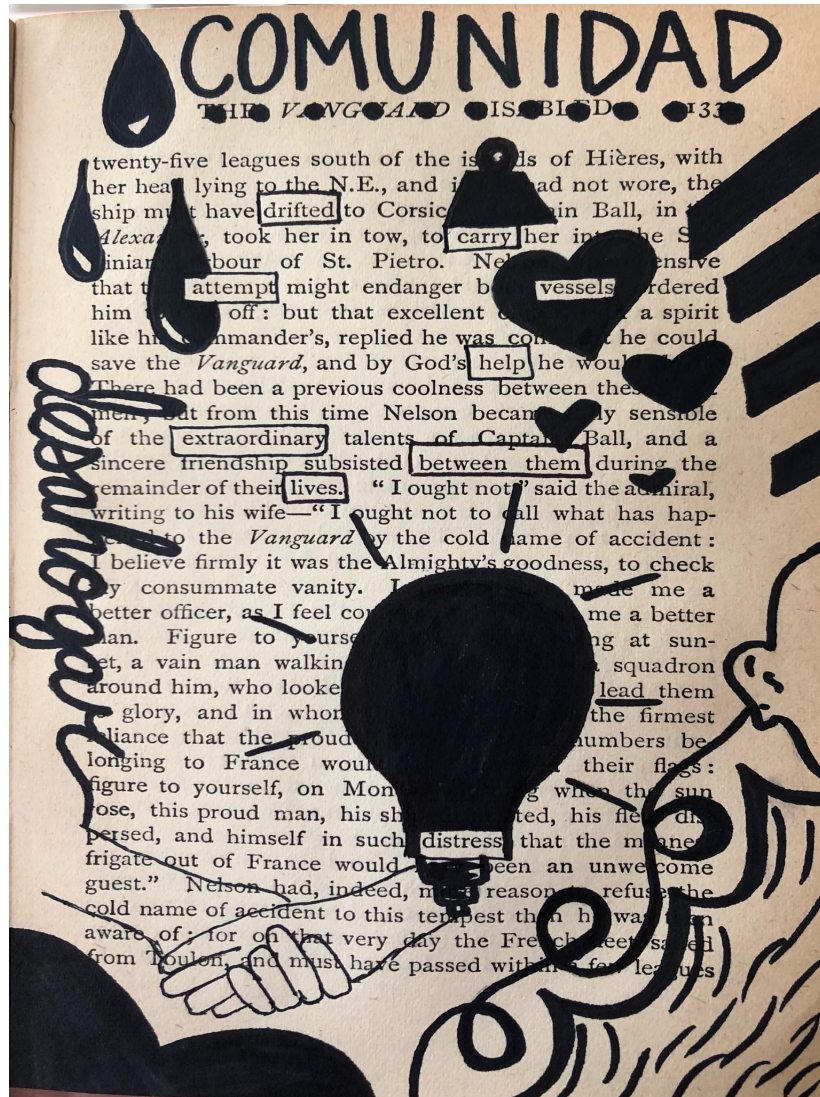 COMUNIDAD
THE VANGUARD DISABLED 133
twenty-five leagues south of the is ds of Hières, with
her head lying to the N.E., and i ad not wore, the
ship must have drifted to Corsic ain Ball, in
Alexa , took her in tow, to carry her into the S
inian bour of St. Pietro. Nel ensive
that t attempt might endanger b vessels, rdered
him off: but that excellent a spirit
like his commander's, replied he was con he could
save the Vanguard, and by God's help he would
There had been a previous coolness between these
men; but from this time Nelson became ly sensible
of the extraordinary talents of Captain Ball, and a
sincere friendship subsisted between them during the
remainder of their lives. “I ought not,” said the admiral,
writing to his wife—“I ought not to call what has hap-
pened to the Vanguard by the cold name of accident:
I believe firmly it was the Almighty's goodness, to check
my consummate vanity. I made me a
better officer, as I feel con me a better
man. Figure to yourse ng at sun-
set, a vain man walkin squadron
around him, who looke lead them
to glory, and in whom the firmest
reliance that the proud numbers be-
longing to France woul their flags:
figure to yourself, on Mon g when the sun
rose, this proud man, his sh ted, his fleet dis-
persed, and himself in such distress that the meanest
frigate out of France would been an unwelcome
guest.” Nelson had, indeed, more reason to refuse the
cold name of accident to this tempest than he was then
aware of; for on that very day the French fleet sailed
from Toulon, and must have passed within a few leagues
desahogar